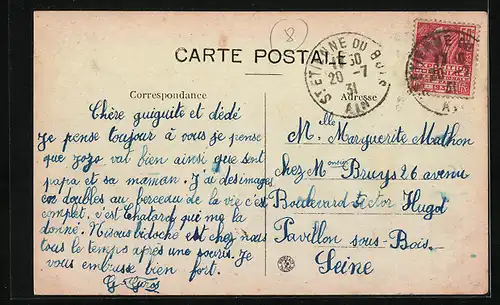 8
CARTE POSTALE
ST ETIENNE DU BOIS
11 30
20 -7
31
AIN
50
Correspondance
Adresse
Chère guiguite et dédé
je pense toujour à vous je pense
que zozo vat bien ainsi que sont
papa et sa maman. J'ai des images
en doubles au berceau de la vie c'est
complet, c'est Chalard qui me la
donné. est chez nous
tous le temps après une souris. Je
vous embrasse bien fort.
M.elle Marguerite Mathon
chez M.onsieur Bruys 26 avenu
Boulevard Victor Hugol
Pavillon sous-Bois
Seine